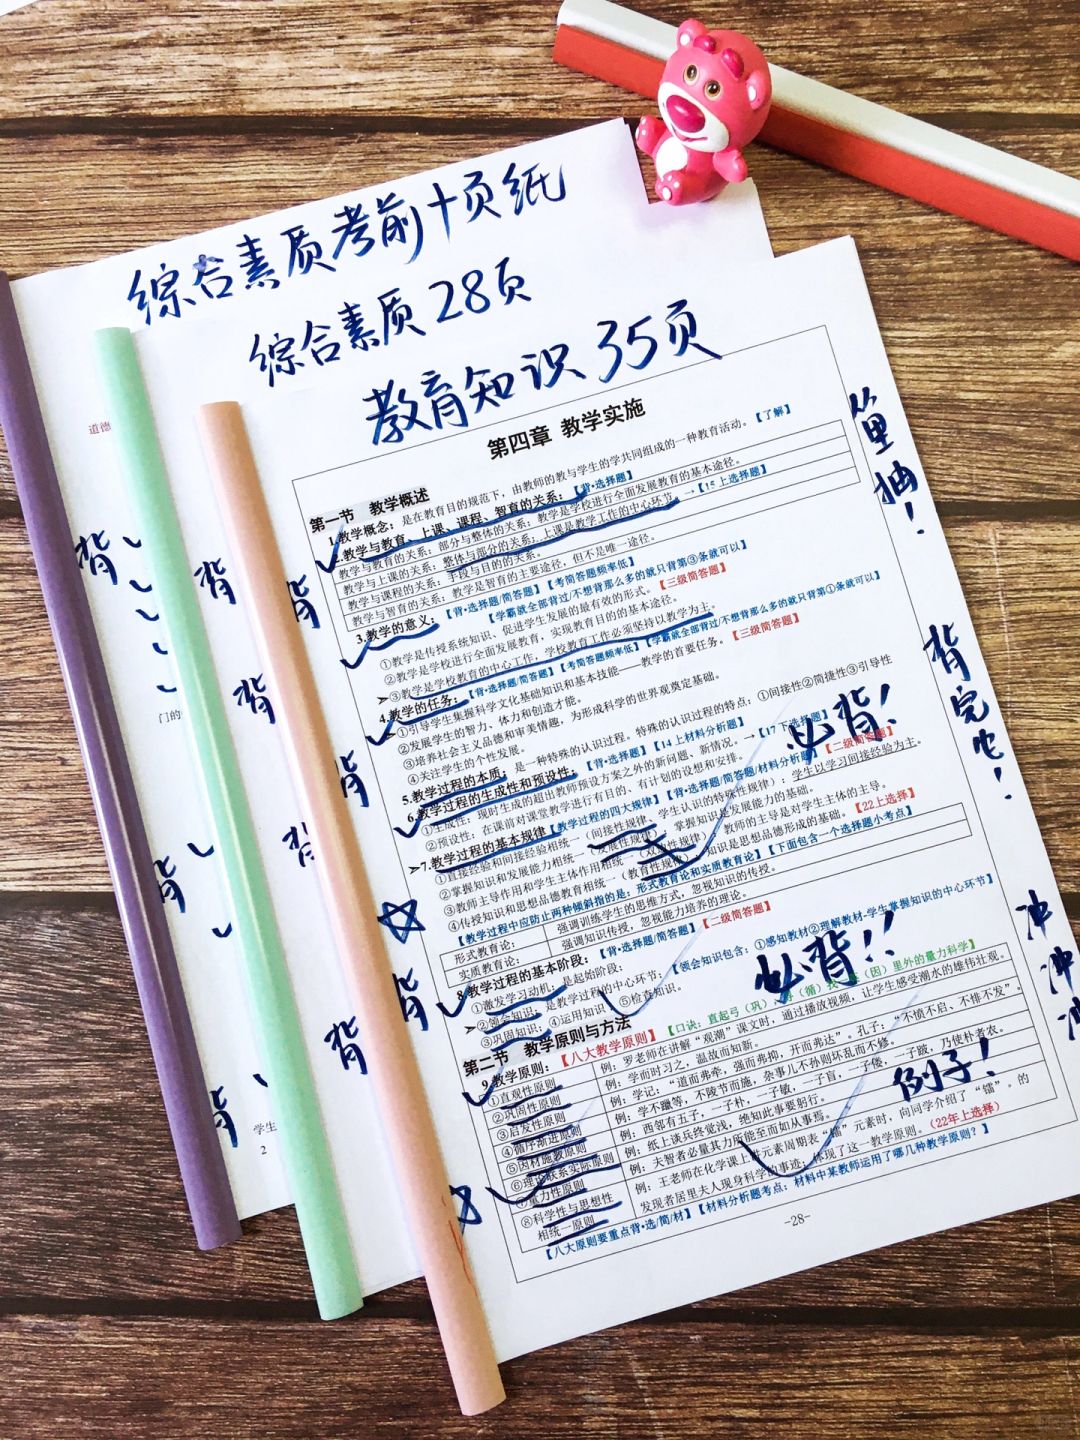 综合素质考前十页纸
综合素质28页
教育知识35页
第四章 教学实施
第一节 教学概述
1.教学概念：是在教育目的规范下，由教师的教与学生的学共同组成的一种教育活动。【了解】
2.教学与教育、上课、课程、智育的关系：【背·选择题】
教学与教育的关系：部分与整体的关系；教学是学校进行全面发展教育的基本途径。
教学与上课的关系：整体与部分的关系；上课是教学工作的中心环节。→【15上选择题】
教学与课程的关系：手段与目的的关系。
教学与智育的关系：教学是智育的主要途径，但不是唯一途径。
3.教学的意义：【背·选择题/简答题】【考简答题频率低】
【学霸就全部背过/不想背那么多的就只背第③条就可以】
①教学是传授系统知识、促进学生发展的最有效的形式。【三级简答题】
②教学是学校进行全面发展教育、实现教育目的的基本途径。
③教学是学校教育的中心工作，学校教育工作必须坚持以教学为主。
4.教学的任务：【背·选择题/简答题】【考简答题频率低】【学霸就全部背过/不想背那么多的就只背第①条就可以】
①引导学生掌握科学文化基础知识和基本技能——教学的首要任务。【三级简答题】
②发展学生的智力、体力和创造才能。
③培养社会主义品德和审美情趣，为形成科学的世界观奠定基础。
④关注学生的个性发展。
5.教学过程的本质：是一种特殊的认识过程。特殊的认识过程的特点：①间接性②简捷性③引导性
6.教学过程的生成性和预设性：【背·选择题】【14上材料分析题】
①生成性：现时生成的超出教师预设方案之外的新问题、新情况。→【17下选择题】
②预设性：在课前对课堂教学进行有目的、有计划的设想和安排。
7.教学过程的基本规律【教学过程的四大规律】【背·选择题/简答题/材料分析题】【二级简答题】
①直接经验和间接经验相统一（间接性规律、学生认识的特殊性规律）：学生以学习间接经验为主。
②掌握知识和发展能力相统一（发展性规律）掌握知识是发展能力的基础。
③教师主导作用和学生主体作用相统一（双边性规律）教师的主导是对学生主体的主导。
④传授知识和思想品德教育相统一（教育性规律）知识是思想品德形成的基础。【22上选择】
【教学过程中应防止两种倾斜指的是：形式教育论和实质教育论】【下面包含一个选择题小考点】
形式教育论： 强调训练学生的思维方式，忽视知识的传授。
实质教育论： 强调知识传授，忽视能力培养的理论。
8.教学过程的基本阶段：【背·选择题/简答题】【二级简答题】
①激发学习动机：是起始阶段；
②领会知识：是教学过程的中心环节；【领会知识包含：①感知教材②理解教材-学生掌握知识的中心环节】
③巩固知识；④运用知识；⑤检查知识。
第二节 教学原则与方法
9.教学原则：【八大教学原则】
①直观性原则 例：罗老师在讲解“观潮”课文时，通过播放视频，让学生感受潮水的雄伟壮观。
②巩固性原则 例：学而时习之，温故而知新。
③启发性原则 例：学记：“道而弗牵，强而弗抑，开而弗达”。孔子：“不愤不启，不悱不发”。
④循序渐进原则 例：学不躐等，不陵节而施，杂事儿不孙则坏乱而不修。
⑤因材施教原则 例：西邻有五子，一子朴，一子敏，一子盲，一子偻，一子跛，乃使朴者农。
⑥理论联系实际原则 例：纸上谈兵终觉浅，绝知此事要躬行。
⑦量力性原则 例：夫智者必量其力所能至而如从事焉。
⑧科学性与思想性相统一原则 例：王老师在化学课上讲元素周期表“镭”元素时，向同学介绍了“镭”的
发现者居里夫人现身科学的事迹，体现了这一教学原则。（22年上选择）
【八大原则要重点背·选/简/材】【材料分析题考点：材料中某教师运用了哪几种教学原则？】
-28-
背
背
背
背
背
背
背
背
背
背
必背！
必背！！
例子！
背完它！
冲
冲
道德
门的
学生
2